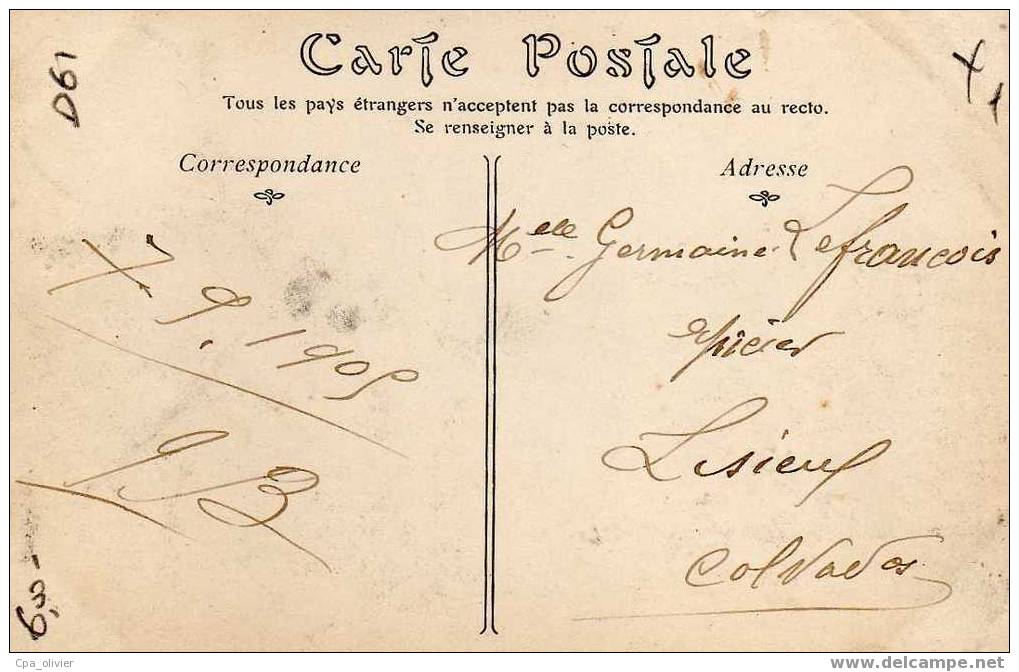 D61
Carte Postale
Tous les pays étrangers n'acceptent pas la correspondance au recto.
Se renseigner à la poste.
Correspondance
Adresse
7. 9. 1905
Melle Germaine Lefrancois
epicier
Lisieux
Calvados
6,
Cpa_olivier
www.delcampe.net